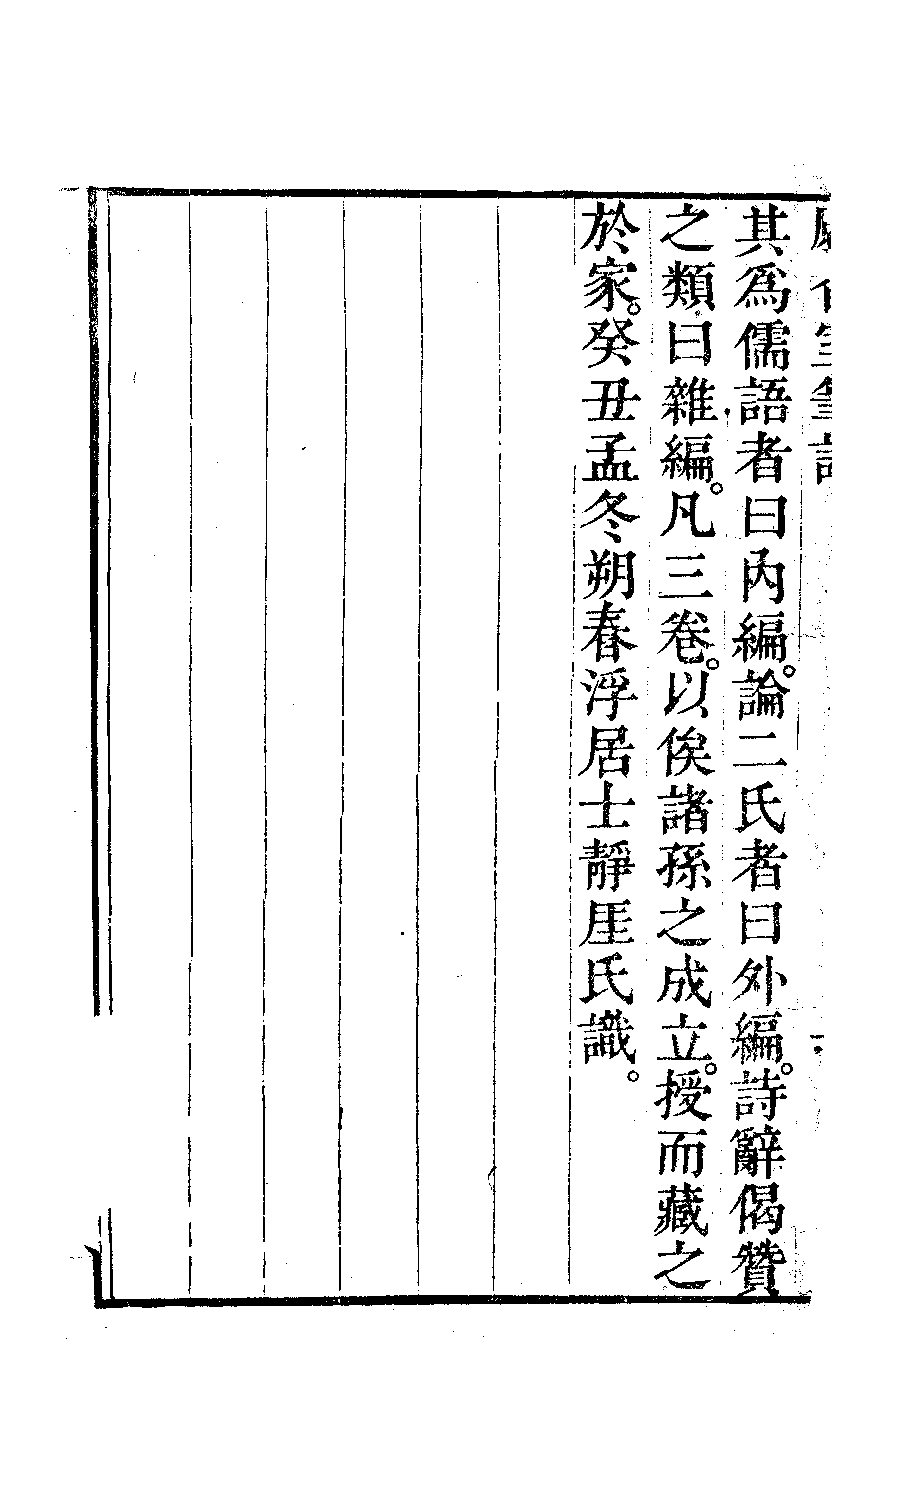 其爲儒語者曰內編。論二氏者曰外編。詩辭偈贊
之類曰雜編。凡三卷。以俟諸孫之成立。授而藏之
於家。癸丑孟冬朔春浮居士靜厓氏識。